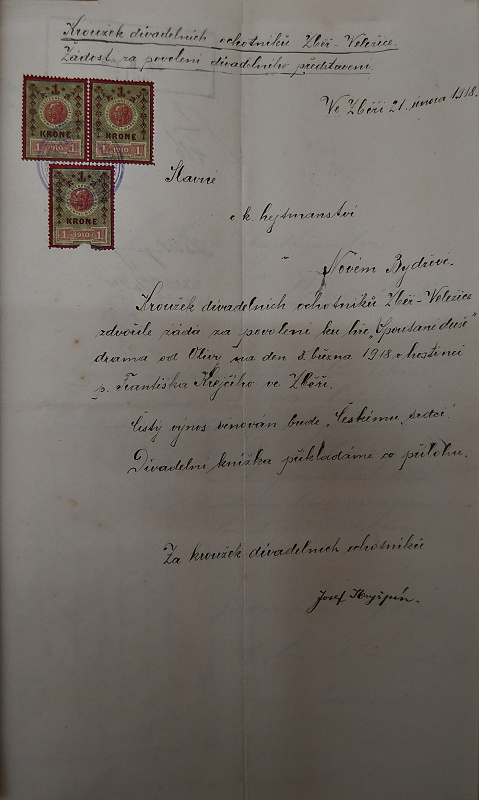 Kroužek divadelních ochotníků Zběř-Veležice.
Žádost za povolení divadelního představení.
Ve Zběři 21. února 1918.
1 K
1 K
KRONE
KRONE
1 1910 1
1 1910 1
1 K
KRONE
1 1910 1
Slavné
c. k. hejtmanství
v
Novém Bydžově.
Kroužek divadelních ochotníků Zběř-Veležice
zdvořile žádá za povolení ku hře „Spoutané duše“
drama od Olivy na den 3. března 1918 v hostinci
p. Františka Krejčího ve Zběři.
Čistý výnos věnován bude „Českému srdci“.
Divadelní knížku přikládáme co přílohu.
Za kroužek divadelních ochotníků
Josef